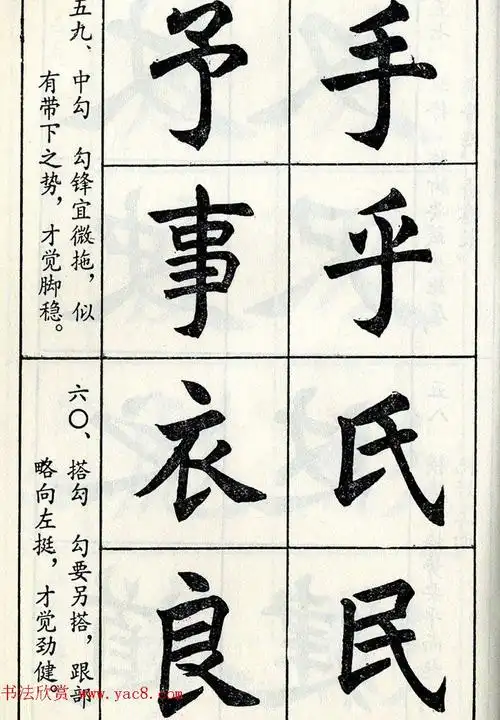 手予
乎事
五九、中勾 勾锋宜微拖，似
有带下之势，才觉脚稳。
氏衣
民良
六〇、搭勾 勾要另搭，跟部
略向左挺，才觉劲健。
书法欣赏 www.yac8.com